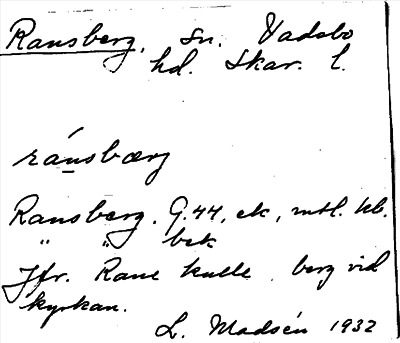 Ransberg, sn. Vadsbo
hd. Skar. l.
ránsbærg
Ransberg. G. 44, ek, mtl. kb.
" " bek
Jfr. Rane kulle, berg vid
kyrkan.
L. Madsén 1932